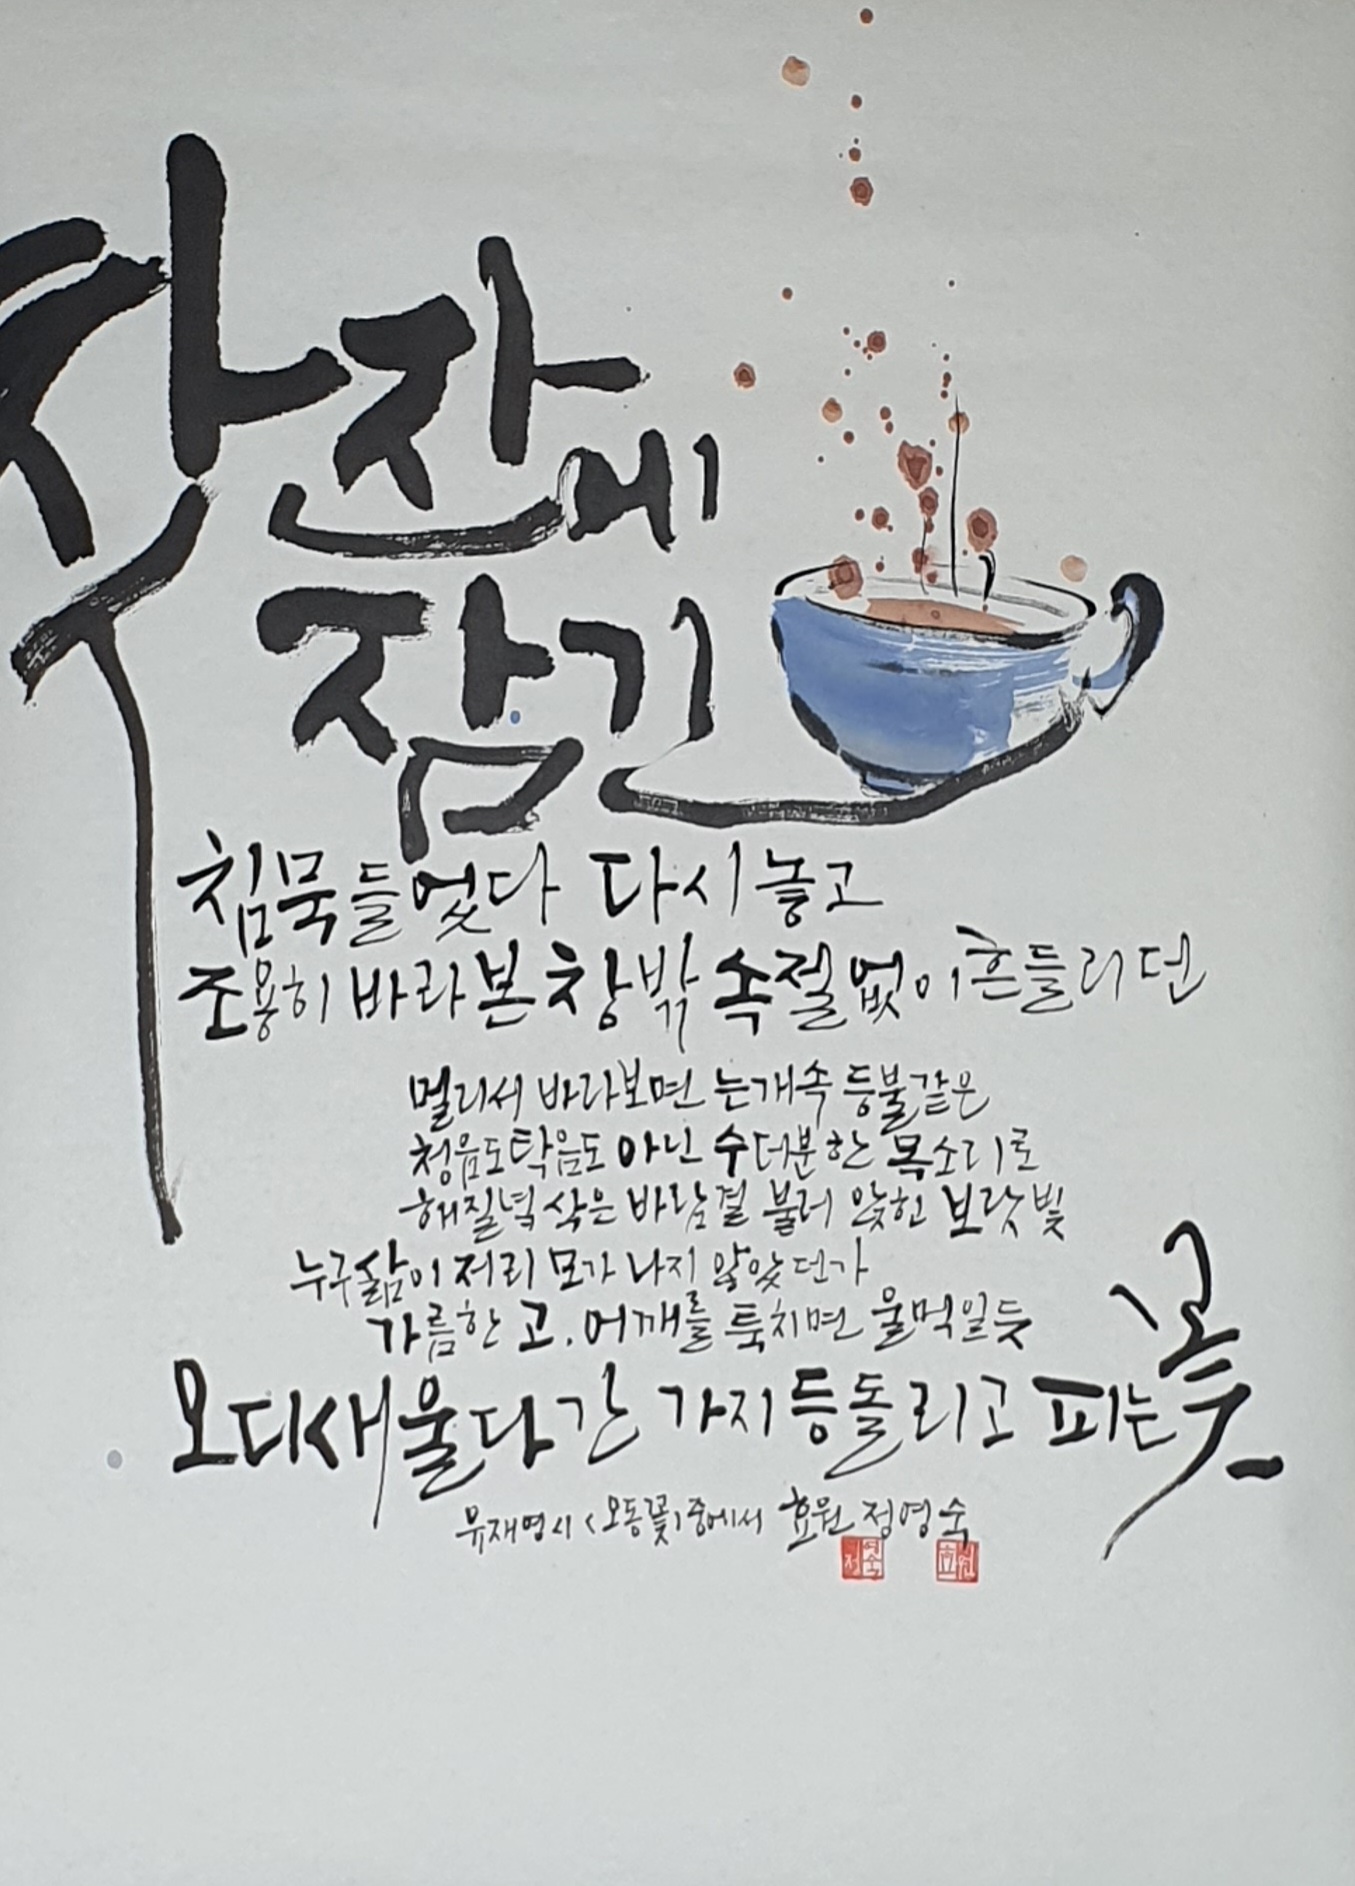 찻잔에
잠긴
침묵 들었다 다시 놓고
조용히 바라본 창밖 속절없이 흔들리던
멀리서 바라보면 는개 속 등불 같은
청음도 탁음도 아닌 수더분한 목소리로
해질녘 삭은 바람결 불러 앉힌 보랏빛
누구 삶이 저리 모가 나지 않았던가
갸름한 고, 어깨를 툭 치면 울먹일 듯
오디새 울다 간 가지 등 돌리고 피는 꽃
유재영 시 <오동꽃> 중에서 효원 정영숙
정영숙
효원